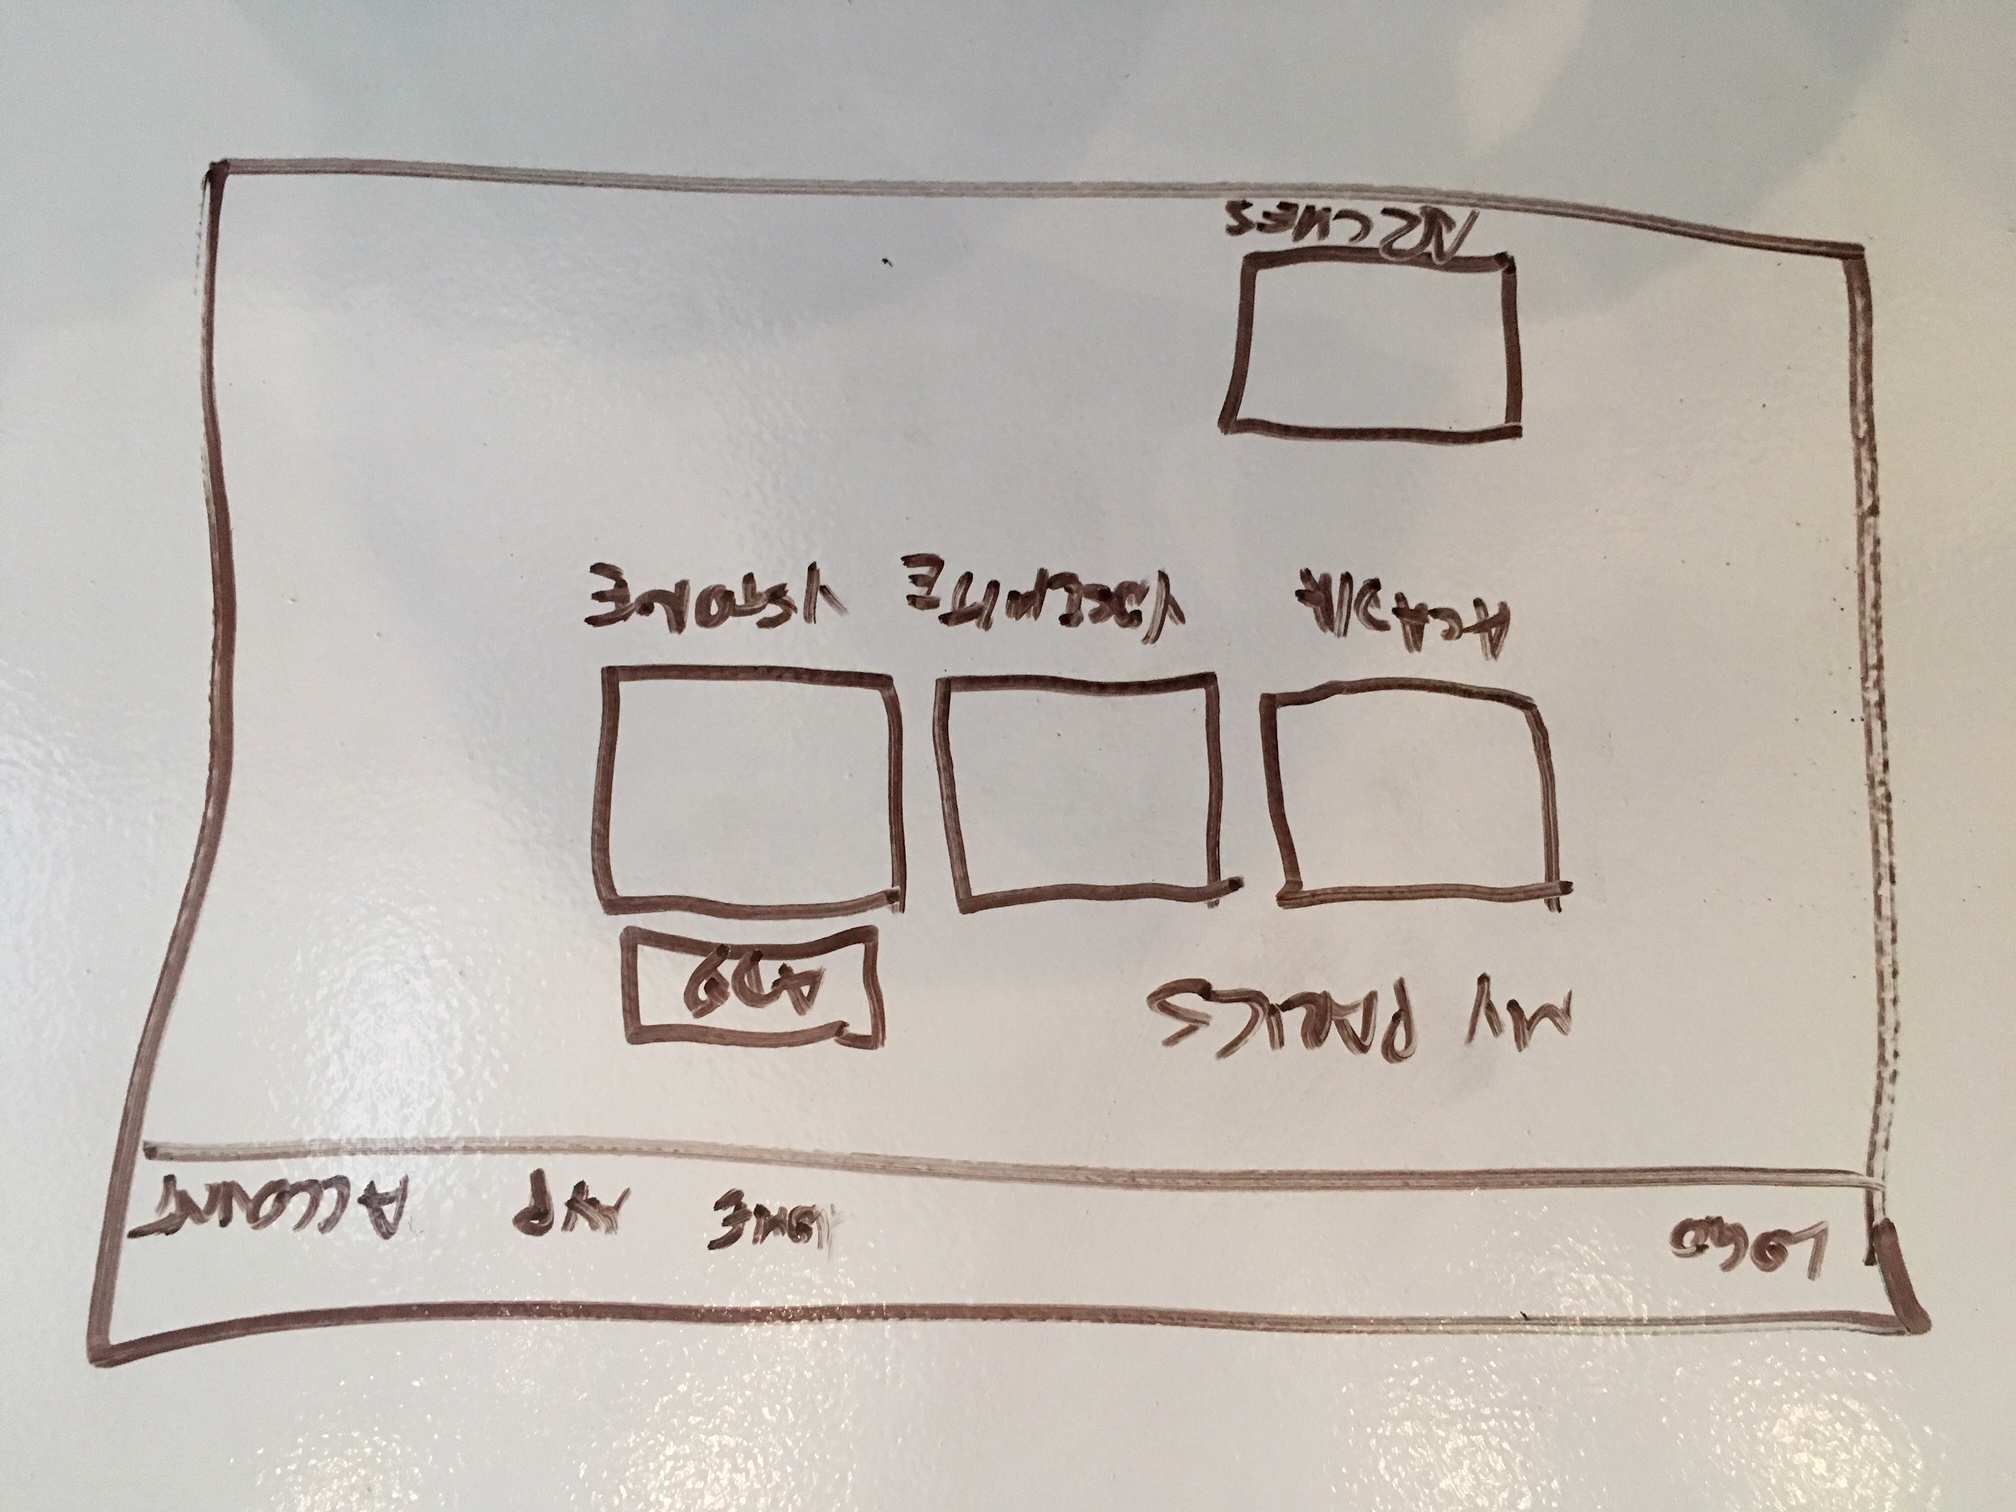 LOGO HOME MP ACCOUNT
MY PARKS ADD
ACADIA YOSEMITE YSTONE
ARCHES